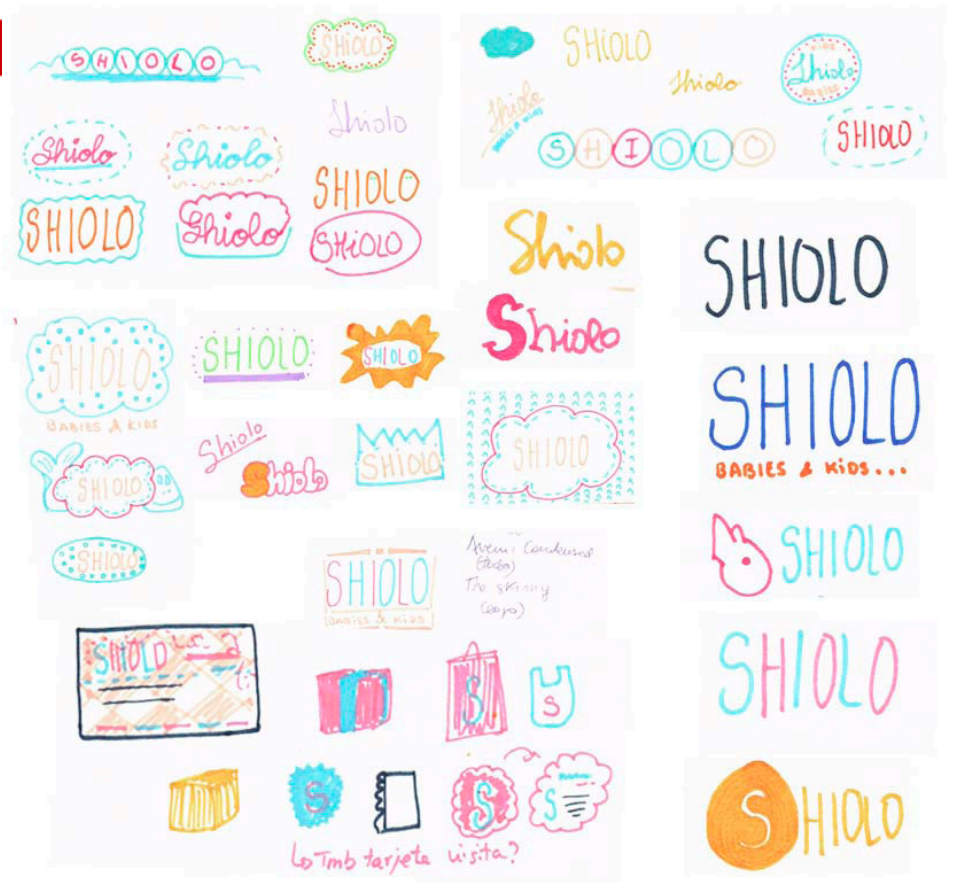 SHIOLO
SHIOLO
Shiolo
Shiolo
Shiolo
SHIOLO
SHIOLO
Shiolo
SHiOLO
SHiOLO
Shiolo
KIDS
Shiolo
BABIES
Shiolo
BABIES & KIDS
SHIOLO
SHIOLO
Shiolo
SHIOLO
Shiolo
SHIOLO
BABIES & KIDS
SHIOLO
SHIOLO
Shiolo
Shiolo
SHIOLO
SHIOLO
SHIOLO
SHIOLO
SHIOLO
SHIOLO
BABIES & KiDS...
SHIOLO
SHIOLO
BABIES & KIDS
Condensed
(texto)
The skinny
(logo)
SHIOLO
SHIOLO
S
S
S
S
S
SHIOLO
Lo Tmb tarjeta visita?